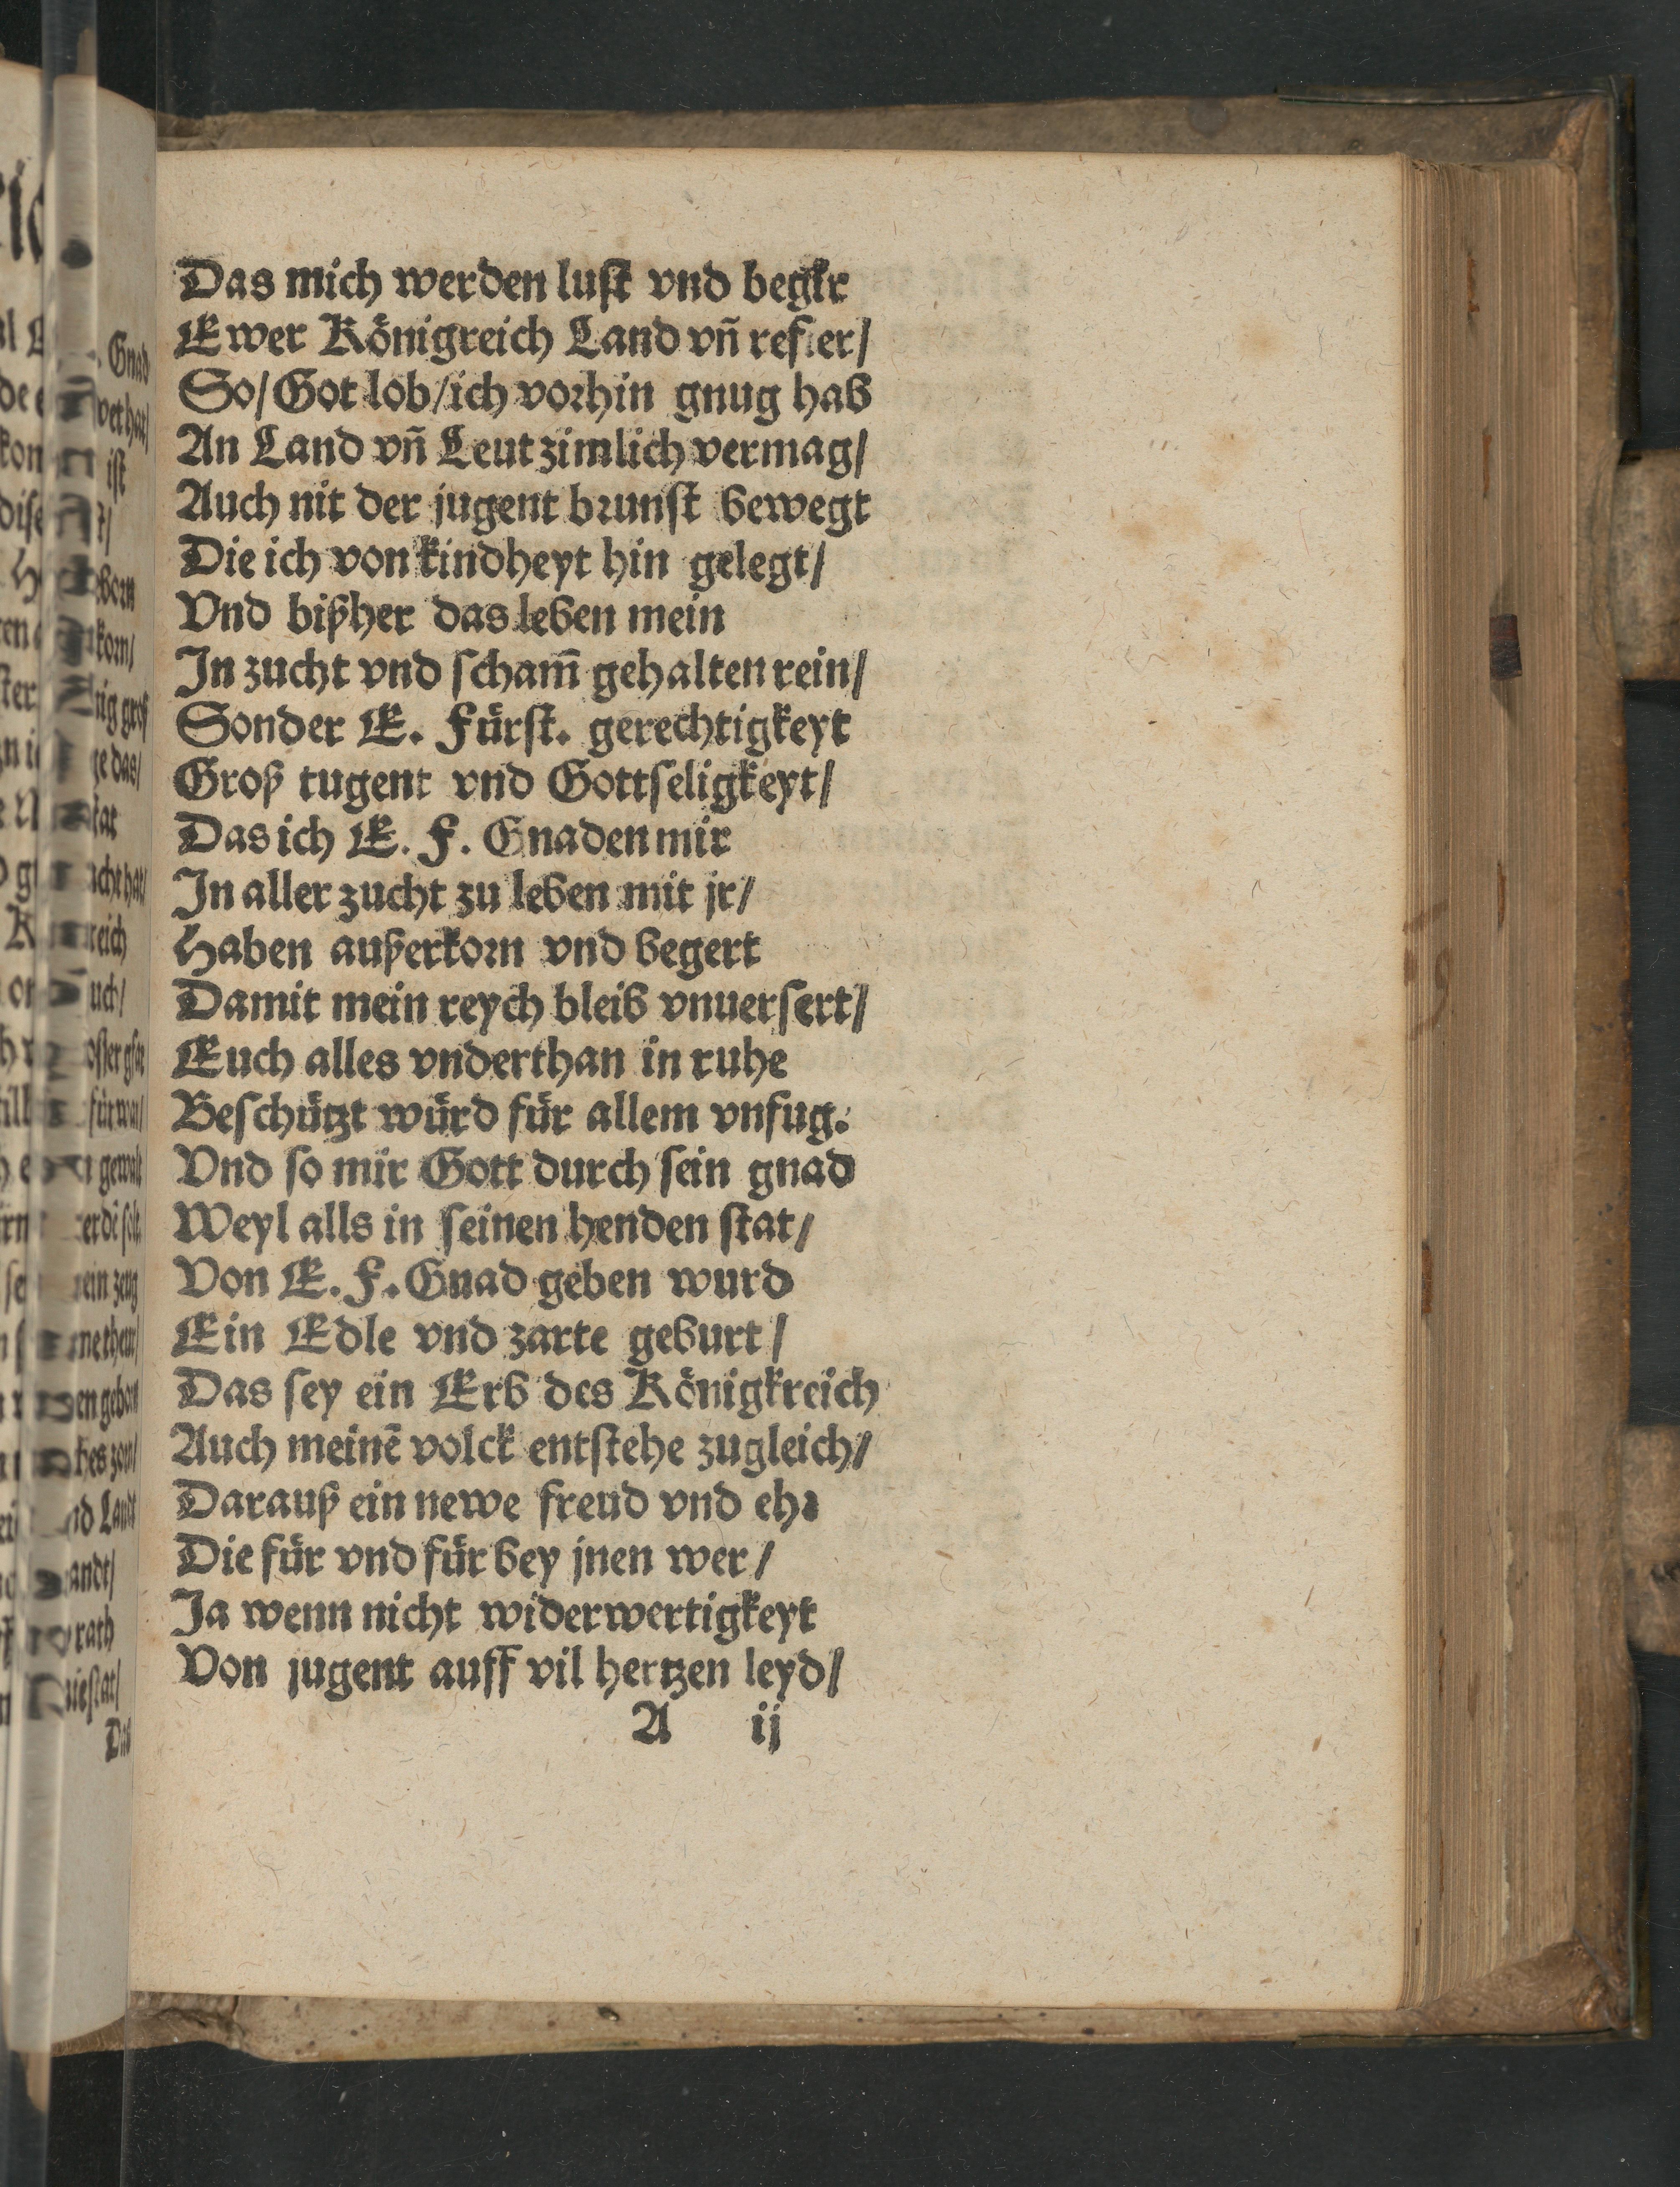 Das mich werden lust vnd begir
Ewer Königreich Land vñ refier/
So/Got lob/ich vorhin gnug hab
An Land vñ Leut zimlich vermag/
Auch nit der jugent brunst bewegt
Die ich von kindheyt hin gelegt/
Vnd bißher das leben mein
In zucht vnd scham̃ gehalten rein/
Sonder E. Fürst. gerechtigkeyt
Groß tugent vnd Gottseligkeyt/
Das ich E. F. Gnaden mir
In aller zucht zu leben mit jr/
Haben außerkorn vnd begert
Damit mein reych bleib vnuersert/
Euch alles vnderthan in ruhe
Beschützt würd für allem vnfug.
Vnd so mir Gott durch sein gnad
Weyl alls in seinen henden stat/
Von E. F. Gnad geben wurd
Ein Edle vnd zarte geburt/
Das sey ein Erb des Königkreich
Auch meinẽ volck entstehe zugleich/
Darauß ein newe freud vnd ehr
Die für vnd für bey jnen wer/
Ja wenn nicht widerwertigkeyt
Von jugent auff vil hertzen leyd/
A ij